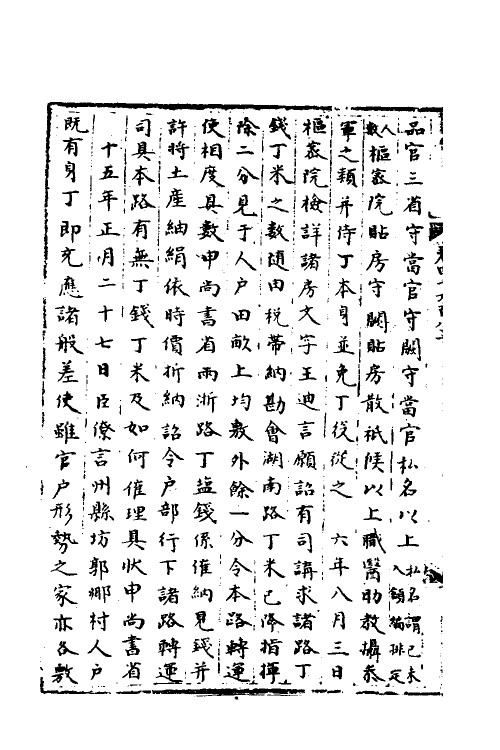 品官三省守當官守闕守當官私名以上私名謂已未入額編排定
人數樞密院貼房守闕貼房散祗候以上職醫助教攝參
軍之類并侍丁本身並免丁役從之　六年八月三日
樞密院檢詳諸房文字王迪言願詔有司講求諸路丁
錢丁米之數隨田稅帶納勘會湖南路丁米已降指揮
除二分見于人户田畝上均敷外餘一分令本路轉運
使相度具數申尚書省兩浙路丁鹽錢係催納見錢并
許將土產紬絹依時價折納詔令户部行下諸路轉運
司具本路有無丁錢丁米及如何催理具狀申尚書省
十五年正月二十七日臣僚言州縣坊郭鄉村人户
既有身丁即充應諸般差使雖官户形勢之家亦各敷